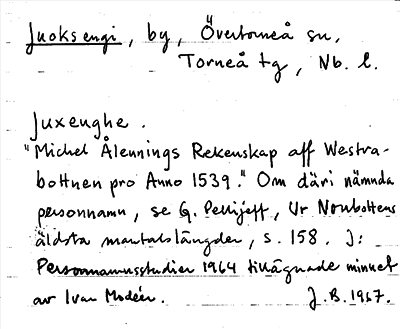 Juoksengi, by, Övertorneå sn,
Torneå tg, Nb. l.
Juxenghe.
"Michel Ålennings Rekenskap aff Westra-
bottnen pro Anno 1539." Om däri nämnda
personnamn, se G. Pellijeff, Ur Norrbottens
äldsta mantalslängder, s. 158. J:
Personnamnsstudier 1964 tillägnade minnet
av Ivar Modéer. J.B. 1967.